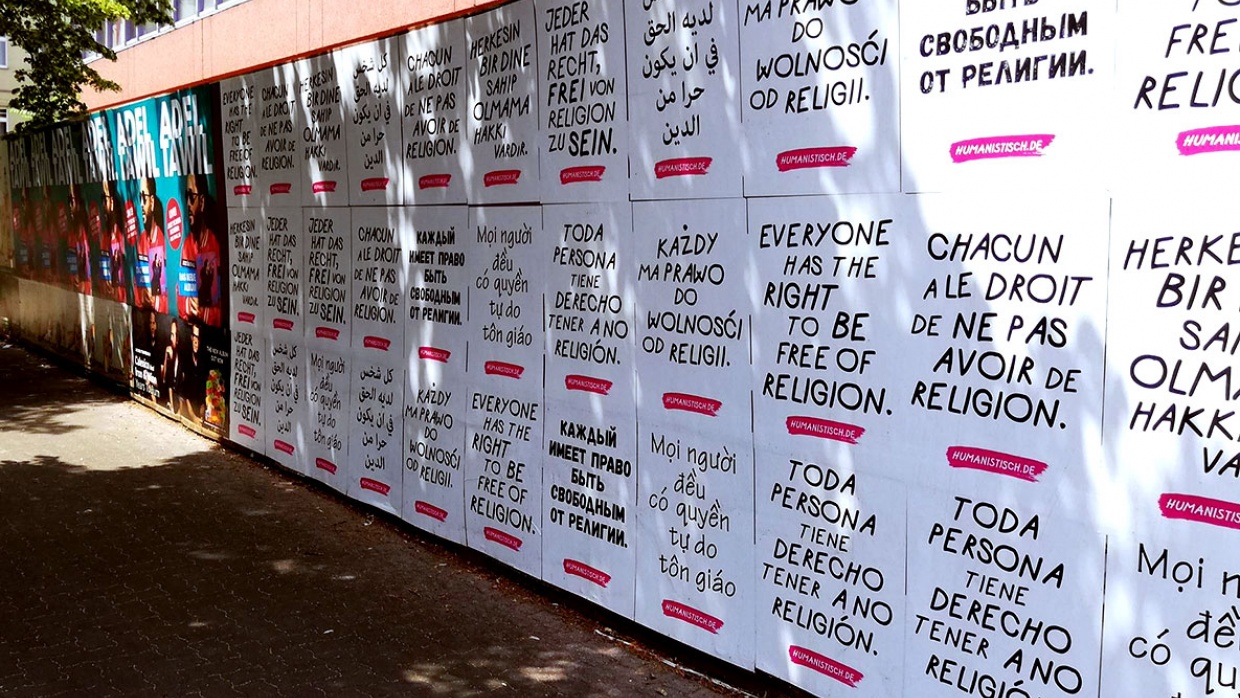 ADEL
TAWIL
EVERYONE
HAS THE
RIGHT
TO BE
FREE OF
RELIGION.
CHACUN
A LE DROIT
DE NE PAS
AVOIR DE
RELIGION.
HERKESIN
BIR DINE
SAHIP
OLMAMA
HAKKI
VARDIR.
كل شخص
لديه الحق
في ان يكون
حرا من
الدين
CHACUN
A LE DROIT
DE NE PAS
AVOIR DE
RELIGION.
HERKESIN
BIR DINE
SAHIP
OLMAMA
HAKKI
VARDIR.
JEDER
HAT DAS
RECHT,
FREI VON
RELIGION
ZU SEIN.
HUMANISTISCH.DE
لديه الحق
في ان يكون
حرا من
الدين
HUMANISTISCH.DE
MA PRAWO
DO
WOLNOSĆI
OD RELIGII.
HUMANISTISCH.DE
БЫТЬ
СВОБОДНЫМ
ОТ РЕЛИГИИ.
HUMANISTISCH.DE
TO
FREE
RELIG
HUMANISTISCH
HERKESIN
BIR DINE
SAHIP
OLMAMA
HAKKI
VARDIR.
JEDER
HAT DAS
RECHT,
FREI VON
RELIGION
ZU SEIN.
JEDER
HAT DAS
RECHT,
FREI VON
RELIGION
ZU SEIN.
CHACUN
A LE DROIT
DE NE PAS
AVOIR DE
RELIGION.
КАЖДЫЙ
ИМЕЕТ ПРАВО
БЫТЬ
СВОБОДНЫМ
ОТ РЕЛИГИИ.
Mọi người
đều
có quyền
tự do
tôn giáo
HUMANISTISCH.DE
TODA
PERSONA
TIENE
DERECHO
TENER A NO
RELIGIÓN.
HUMANISTISCH.DE
KAŻDY
MA PRAWO
DO
WOLNOSĆI
OD RELIGII.
HUMANISTISCH.DE
EVERYONE
HAS THE
RIGHT
TO BE
FREE OF
RELIGION.
HUMANISTISCH.DE
CHACUN
A LE DROIT
DE NE PAS
AVOIR DE
RELIGION.
HUMANISTISCH.DE
HERKE
BIR
SA
OLMA
HAKK
VA
HUMANISTISC
JEDER
HAT DAS
RECHT,
FREI VON
RELIGION
ZU SEIN.
كل شخص
لديه الحق
في ان يكون
حرا من
الدين
Mọi người
đều
có quyền
tự do
tôn giáo
كل شخص
لديه الحق
في ان يكون
حرا من
الدين
KAŻDY
MA PRAWO
DO
WOLNOSĆI
OD RELIGII.
HUMANISTISCH.DE
EVERYONE
HAS THE
RIGHT
TO BE
FREE OF
RELIGION.
HUMANISTISCH.DE
КАЖДЫЙ
ИМЕЕТ ПРАВО
БЫТЬ
СВОБОДНЫМ
ОТ РЕЛИГИИ.
HUMANISTISCH.DE
Mọi người
đều
có quyền
tự do
tôn giáo
HUMANISTISCH.DE
TODA
PERSONA
TIENE
DERECHO
TENER A NO
RELIGIÓN.
HUMANISTISCH.DE
TODA
PERSONA
TIENE
DERECHO
TENER A NO
RELIGIÓN.
Mọi n
đề
có qu